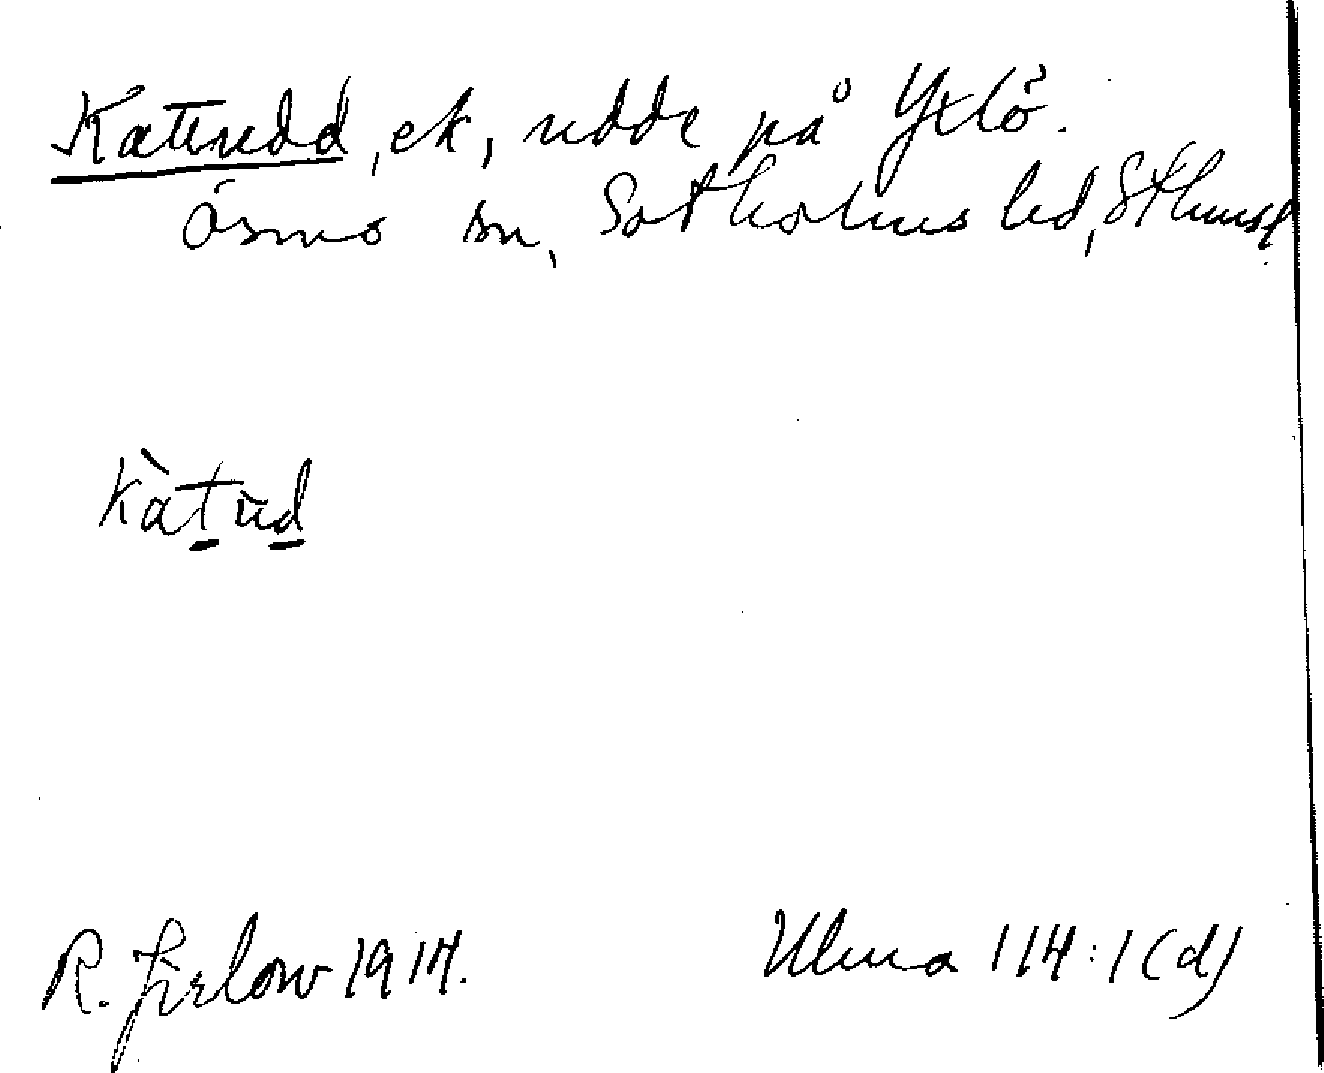 Kattudd, ek, udde på Yxlö.
Ösmo sn, Sotholms hd, Sthmsl.
kàtud
R. Jirlow 1914.
Ulma 114:1(d)